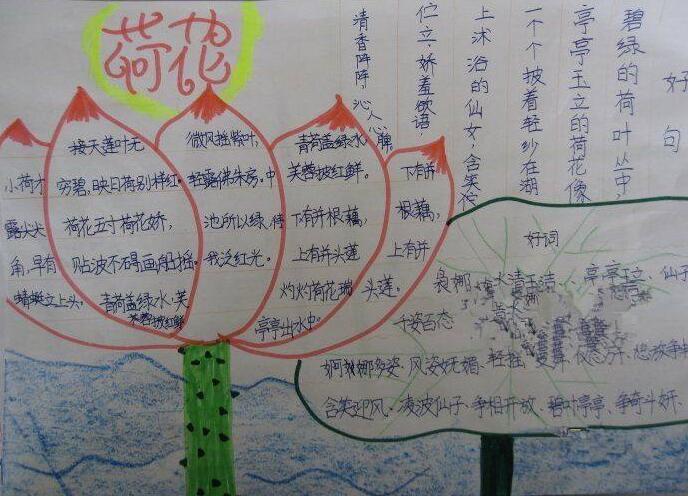 荷花
小荷才
露尖尖
角,早有
蜻蜓立上头,
接天莲叶无
穷碧,映日荷别样红。
荷花五寸荷花娇,
贴波不碍画船摇。
青荷盖绿水,芙
蓉披红鲜
微风摇紫叶,
轻露拂朱房。中
池所以绿,待
我泛红光。
青荷盖绿水,
芙蓉披红鲜。
下有并根藕,
上有并头莲
灼灼荷花瑞,
亭亭出水中。
下有并
根藕,
上有并
头莲。
好句
碧绿的荷叶丛中,
亭亭玉立的荷花像
一个个披着轻纱在湖
上沐浴的仙女,含笑伫
伫立,娇羞欲语,
清香阵阵,沁人心脾
好词
袅娜、水清玉洁、亭亭玉立、仙子
千姿百态
婀娜多姿、风姿妩媚、轻摇
含笑迎风、凌波仙子、争相开放、碧叶亭亭、争奇斗妍、